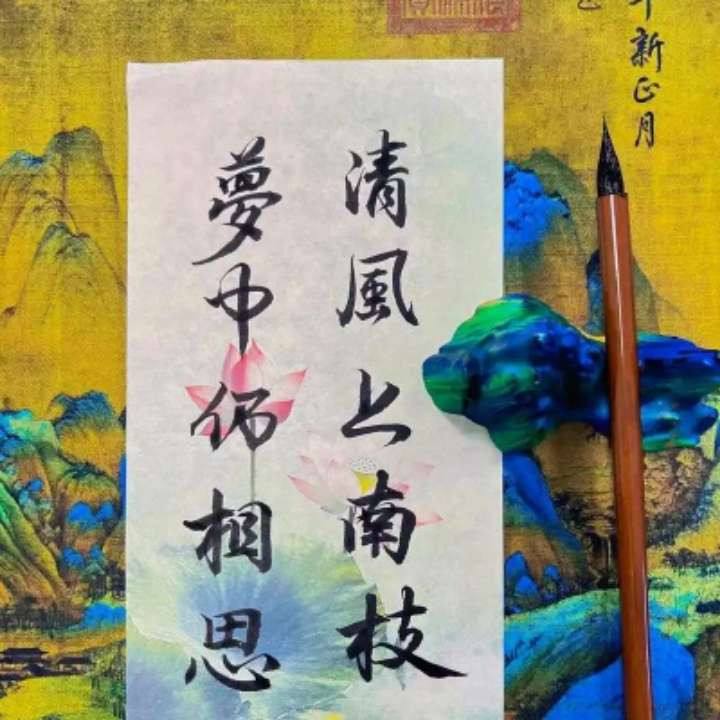 新正月
清風上南枝
夢中仍相思